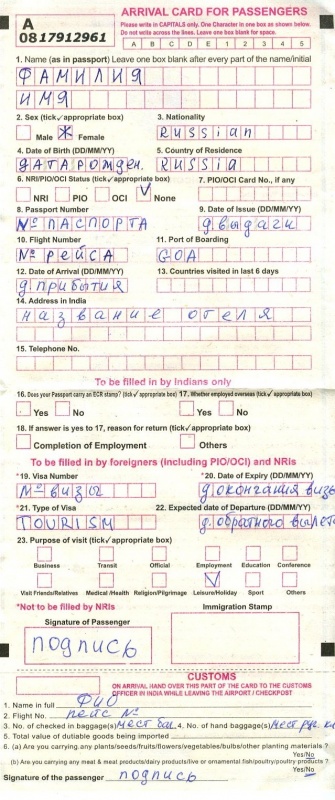 A
0817912961
ARRIVAL CARD FOR PASSENGERS
Please write in CAPITALS only. One Character in one box as shown below.
Do not write across the lines. Leave one box blank for space.
A B C D E 1 2 3 4 5
1. Name (as in passport) Leave one box blank after every part of the name/initial
ФАМИЛИЯ
ИМЯ
2. Sex (tick✓appropriate box) 3. Nationality
Male Female Russian
4. Date of Birth (DD/MM/YY) 5. Country of Residence
ДАТА РОЖДЕН. RUSSIA
6. NRI/PIO/OCI Status (tick✓appropriate box) 7. PIO/OCI Card No., if any
NRI PIO OCI None
8. Passport Number 9. Date of Issue (DD/MM/YY)
№ ПАСПОРТА д выдачи
10. Flight Number 11. Port of Boarding
№ РЕЙСА GOA
12. Date of Arrival (DD/MM/YY) 13. Countries visited in last 6 days
д прибытия
14. Address in India
название отеля
15. Telephone No.
To be filled in by Indians only
16. Does your Passport carry an ECR stamp? (tick✓ appropriate box) 17. Whether employed overseas (tick✓appropriate box)
Yes No Yes No
18. If answer is yes to 17, reason for return (tick✓appropriate box)
Completion of Employment Others
To be filled in by foreigners (including PIO/OCI) and NRIs
*19. Visa Number *20. Date of Expiry (DD/MM/YY)
№ визы д.окончания визы
*21. Type of Visa 22. Expected date of Departure (DD/MM/YY)
TOURISM д.обратного вылета
23. Purpose of visit (tick✓appropriate box)
Business Transit Official Employment Education Conference
Visit Friends/Relatives Medical /Health Religion/Pilgrimage Leisure/Holiday Sport Others
*Not to be filled by NRIs Immigration Stamp
Signature of Passenger
подпись
CUSTOMS
ON ARRIVAL HAND OVER THIS PART OF THE CARD TO THE CUSTOMS
OFFICER IN INDIA WHILE LEAVING THE AIRPORT / CHECKPOST
1. Name in full ФИО
2. Flight No. рейс №
3. No. of checked in baggage(s) мест баг. 4. No. of hand baggage(s) мест руч.
5. Total value of dutiable goods being imported
6. (a) Are you carrying any plants/seeds/fruits/flowers/vegetables/bulbs/other planting materials ?
Yes/No
(b) Are you carrying any meat & meat products/dairy products/live or ornamental fish/poultry/poultry products ?
Yes/No
Signature of the passenger подпись